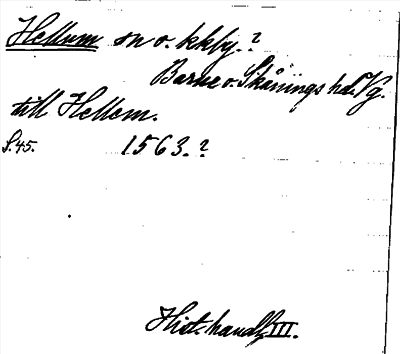 Hellum sn o. kkby.?
Barne o. Skånings hd. Vg.
till Hellem.
S.45. 1563.?
Hist. handl. III.